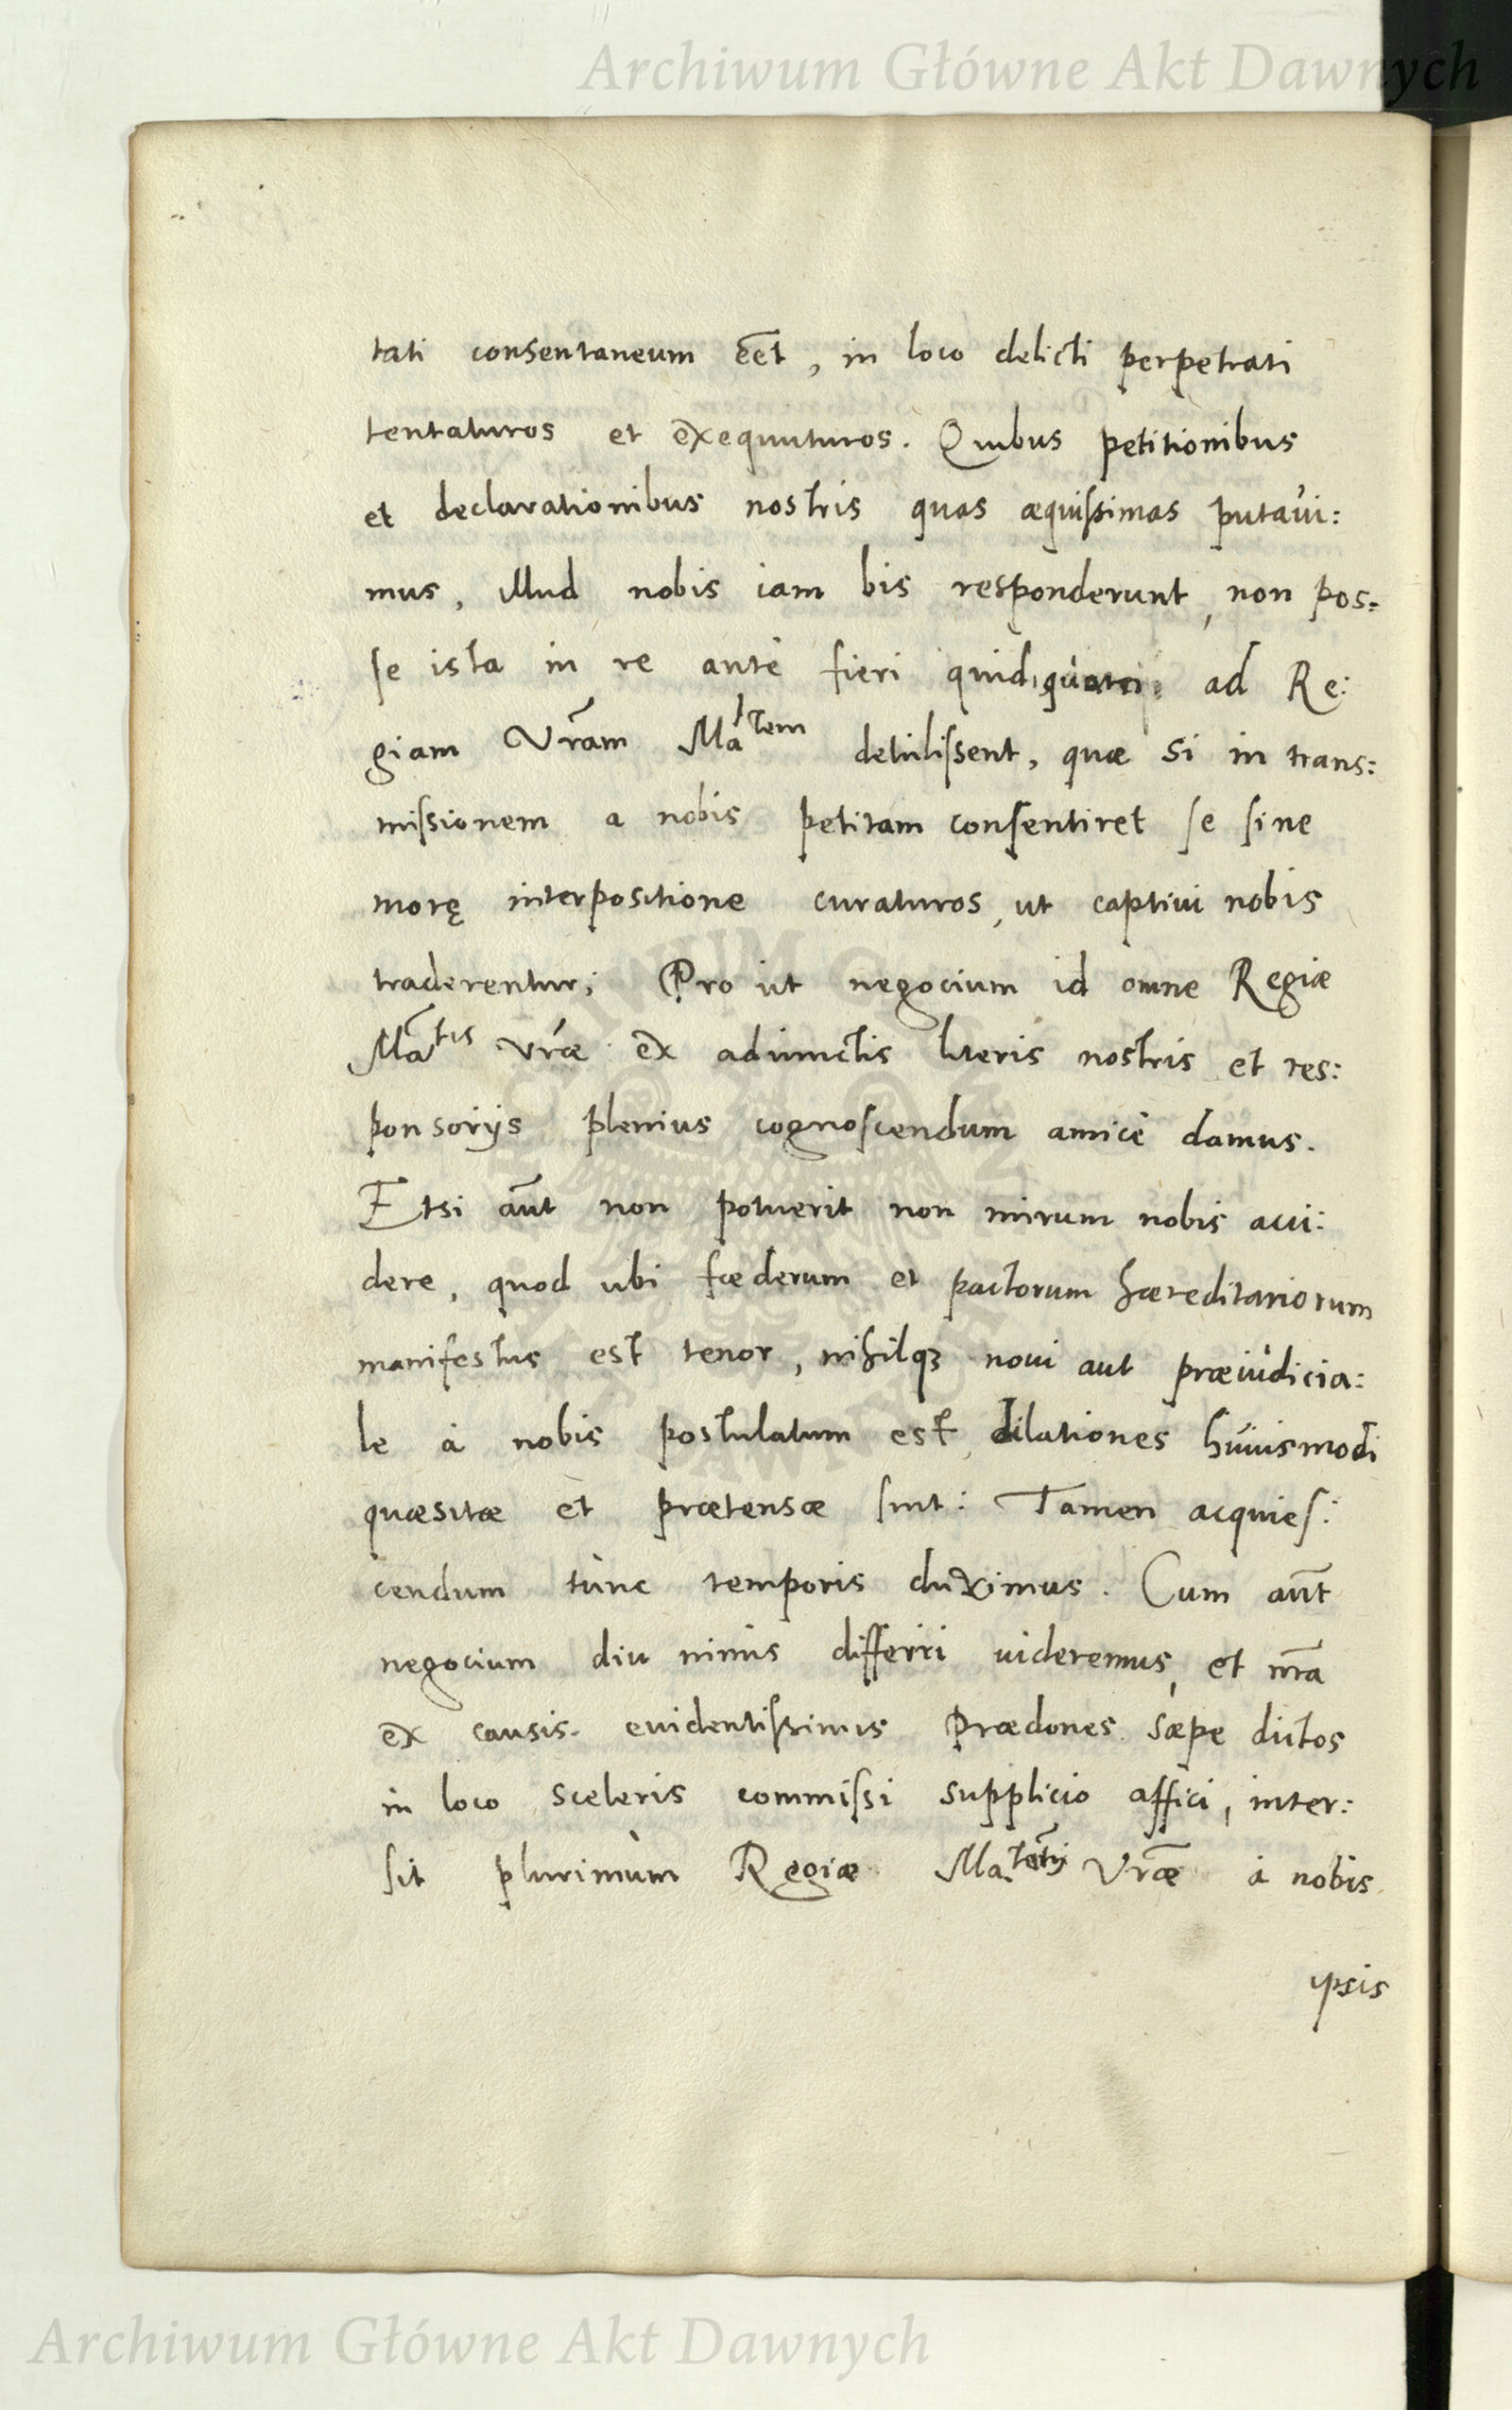 Archiwum Główne Akt Dawnych
tati consentaneum eēt, in loco delicti perpetrati
tentaturos et exequuturos. Quibus petitionibus
et declarationibus nostris quas æquissimas putavi:
mus, illud nobis iam bis responderunt, non pos=
se ista in re antè fieri quid, quàm ad Re:
giam Vr̄am Ma^tem detulissent, quæ si in trans:
missionem a nobis petitam consentiret se sine
morę interpositione curaturos, ut captivi nobis
traderentur; Pro ut negocium id omne Regiæ
Ma^tis vr̄æ ex adiunctis literis nostris et res:
ponsorijs plenius cognoscendum amicè damus.
Etsi aūt non potuerit non mirum nobis acci:
dere, quod ubi fœderum et pactorum hæreditariorum
manifestus est tenor, nihilqꝫ noui aut præiùdicia:
le à nobis postulatum est, dilationes huiusmodi
quæsitæ et prætensæ sint: Tamen acquies:
cendum tùnc temporis duximus. Cum aūt
negocium diu nimis differri uideremus, et nr̄a
ex causis euidentissimis prædones sæpe dictos
in loco sceleris commissi supplicio affici, inter:
sit plurimùm Regiæ Vr̄æ à nobis
ypsis
Archiwum Główne Akt Dawnych